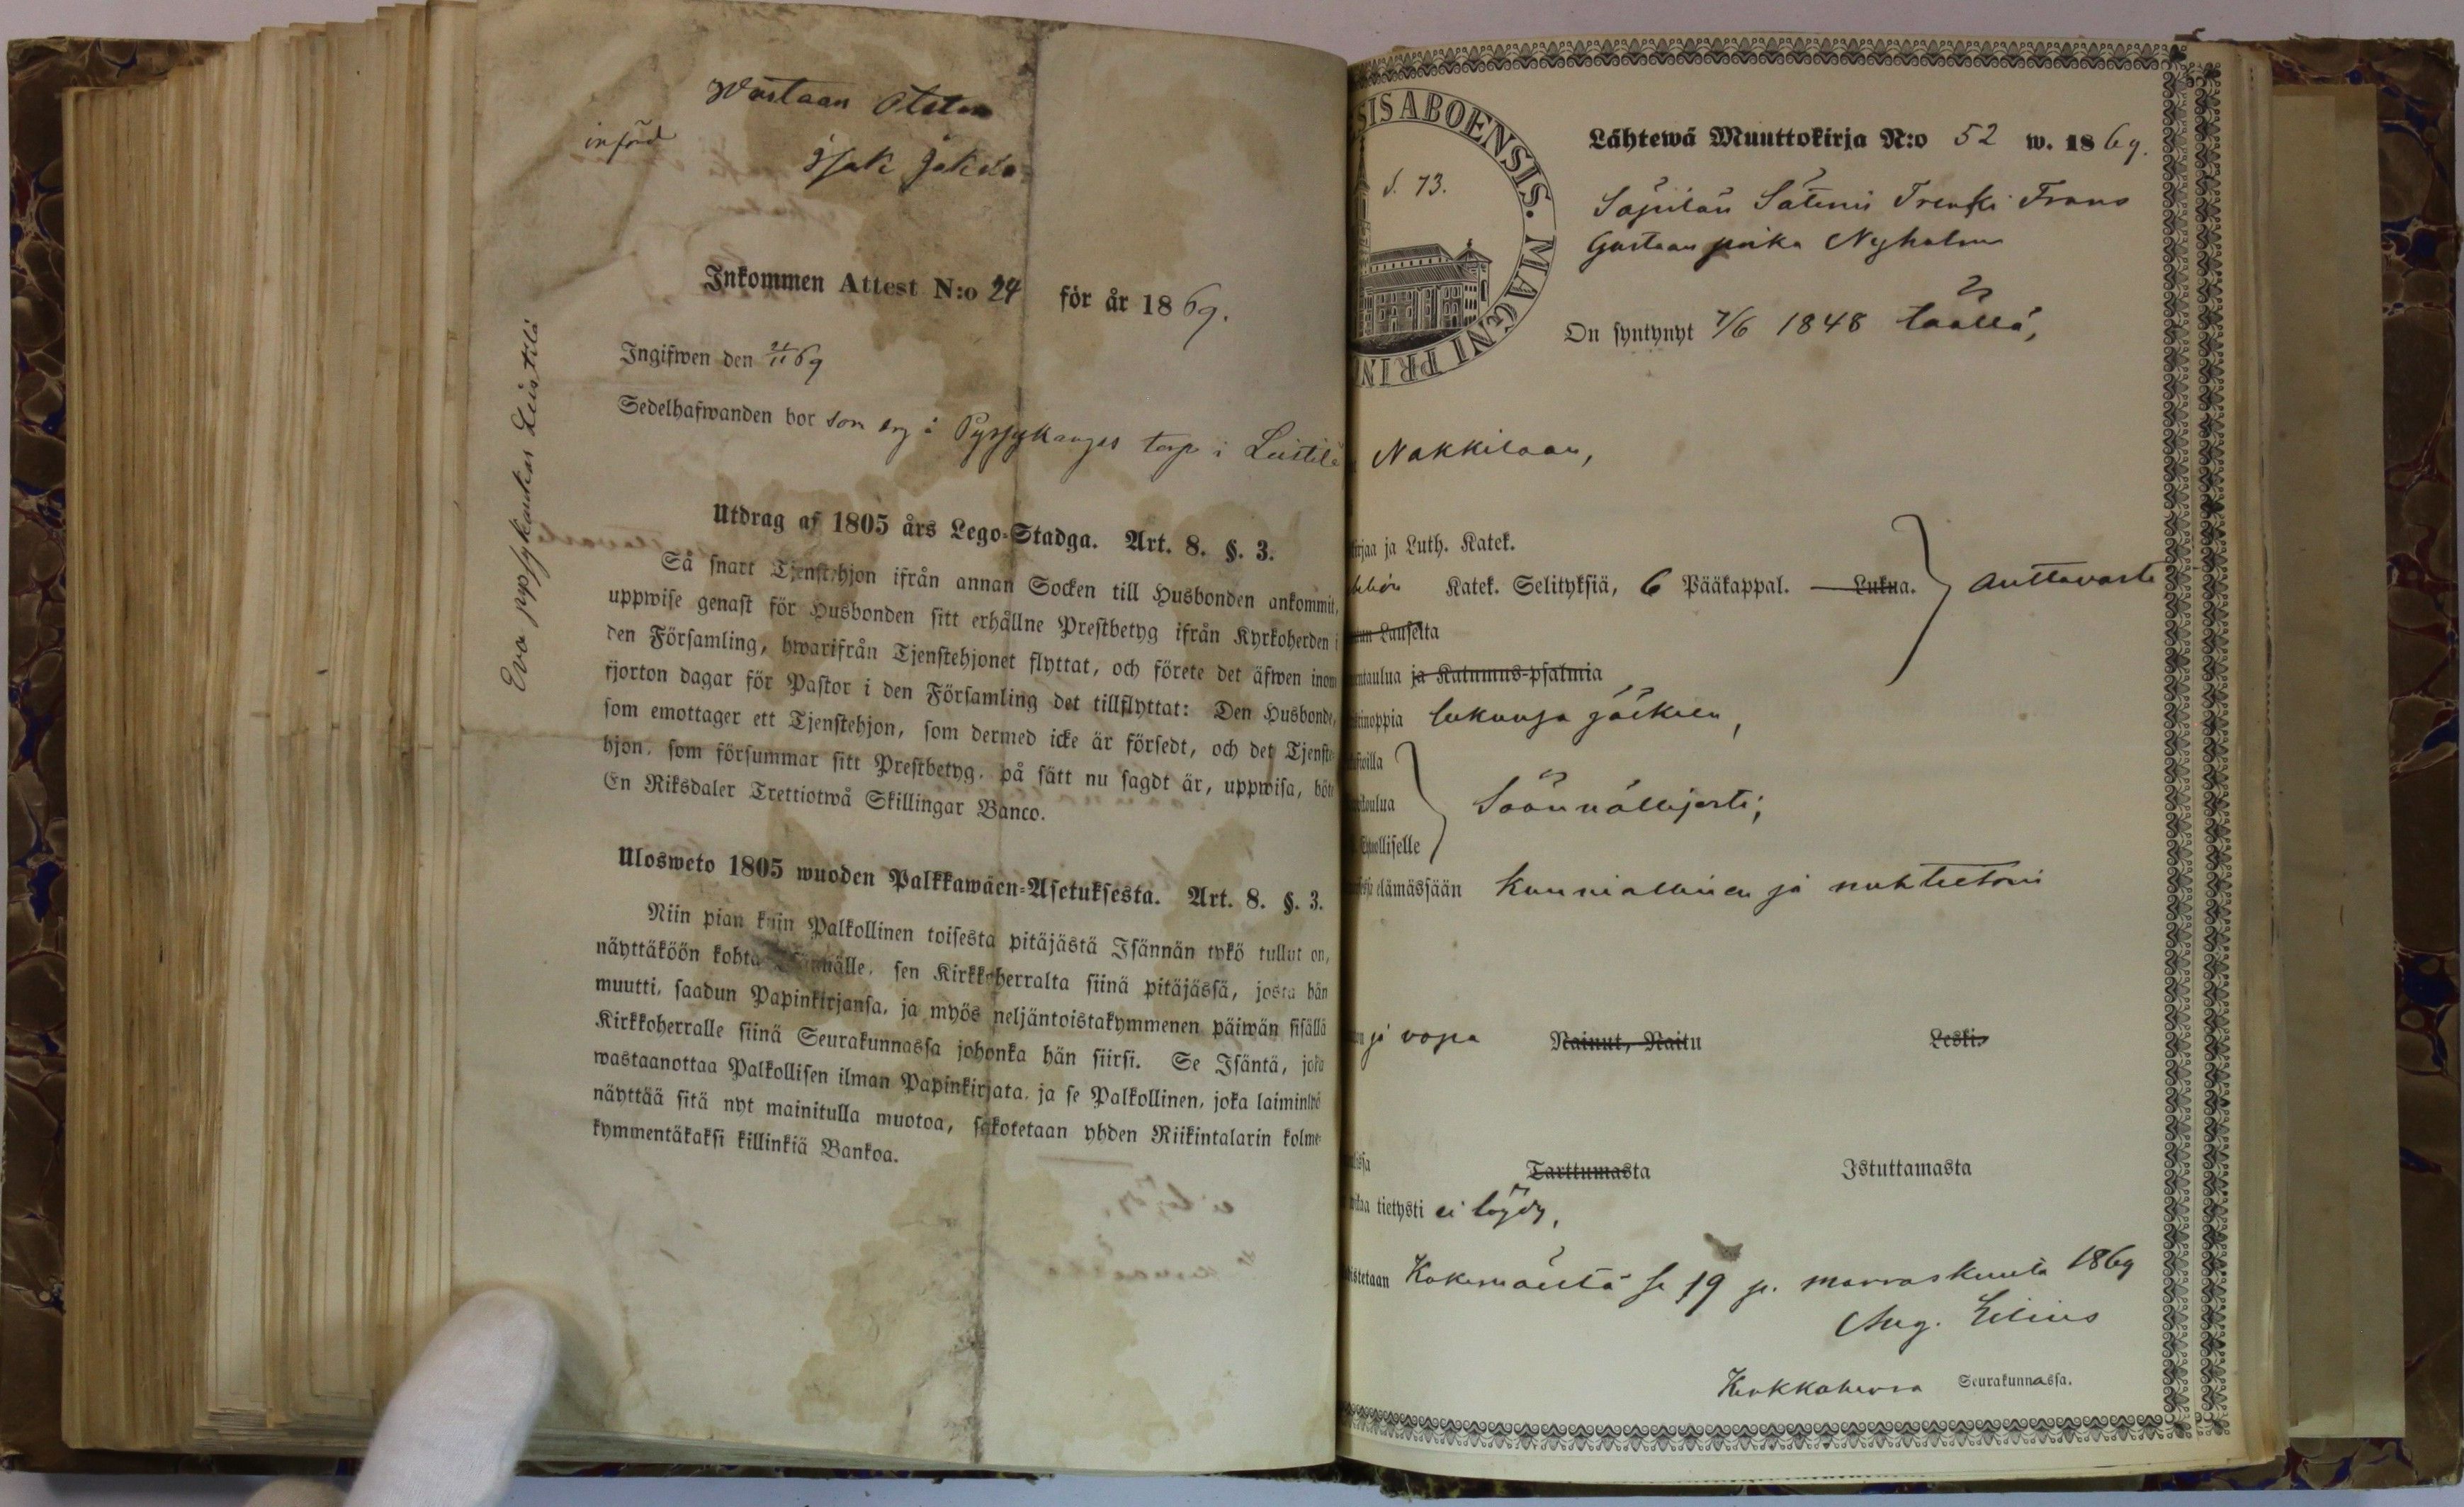 Wastaan Otetan
införd
Isak Jakobs
Inkommen Attest N:o 24 för år 1869.
Ingifwen den 21/11 69
Sedelhafwanden bor som drg å Pyssykangas torp i Leistilä
Eva pyssykankas Leistilä
Utdrag af 1805 års Lego-Stadga. Art. 8. §. 3.
Så snart Tjenstehjon ifrån annan Socken till Husbonden ankommit,
uppwise genast för Husbonden sitt erhållne Prestbetyg ifrån Kyrkoherden i
den Församling, hwarifrån Tjenstehjonet flyttat, och förete det äfwen inom
fjorton dagar för Pastor i den Församling det tillflyttat: Den Husbonde,
som emottager ett Tjenstehjon, som dermed icke är försedt, och det Tjenste-
hjon, som försummar sitt Prestbetyg, på sätt nu sagdt är, uppwisa, böte
En Riksdaler Trettiotwå Skillingar Banco.
Ulosweto 1805 wuoden Palkkawäen-Asetuksesta. Art. 8. §. 3.
Niin pian kuin Palkollinen toisesta pitäjästä Isännän tykö tullut on,
näyttäköön kohta Isännälle, sen Kirkkoherralta siinä pitäjässä, josta hän
muutti, saadun Papinkirjansa, ja myös neljäntoistakymmenen päiwän sisällä
Kirkkoherralle siinä Seurakunnassa johonka hän siirsi. Se Isäntä, joka
wastaanottaa Palkollisen ilman Papinkirjata, ja se Palkollinen, joka laiminlyö
näyttää sitä nyt mainitulla muotoa, sakotetaan yhden Riikintalarin kolme-
kymmentäkaksi killinkiä Bankoa.
SIS ABOENSIS. MAGNI PRIN
S. 73.
Lähtewä Muuttokirja N:o 52 w. 1869.
Säpilän Säterin Trenki Frans
Gustaan poika Nyholm
On syntynyt 7/6 1848 täällä,
Nakkilaan,
irjaa ja Luth. Katek.
Katek. Selityksiä, 6 Pääkappal. Lukua. auttavasti
Lauseita
ntaulua ja Katumus-psalmia
inoppia lukunsa jälkeen,
sioilla
toulua Säännöllisesti;
olliselle
elämässään Kunniallinen ja nuhteetoin
ja vapa Nainut, Naitu Leski.
ssa Tarttumasta Istuttamasta
tietysti ei löydy,
istetaan Kokemäeltä se 19 p. marraskuuta 1869
Aug. Lilius
Kirkkoherra Seurakunnassa.